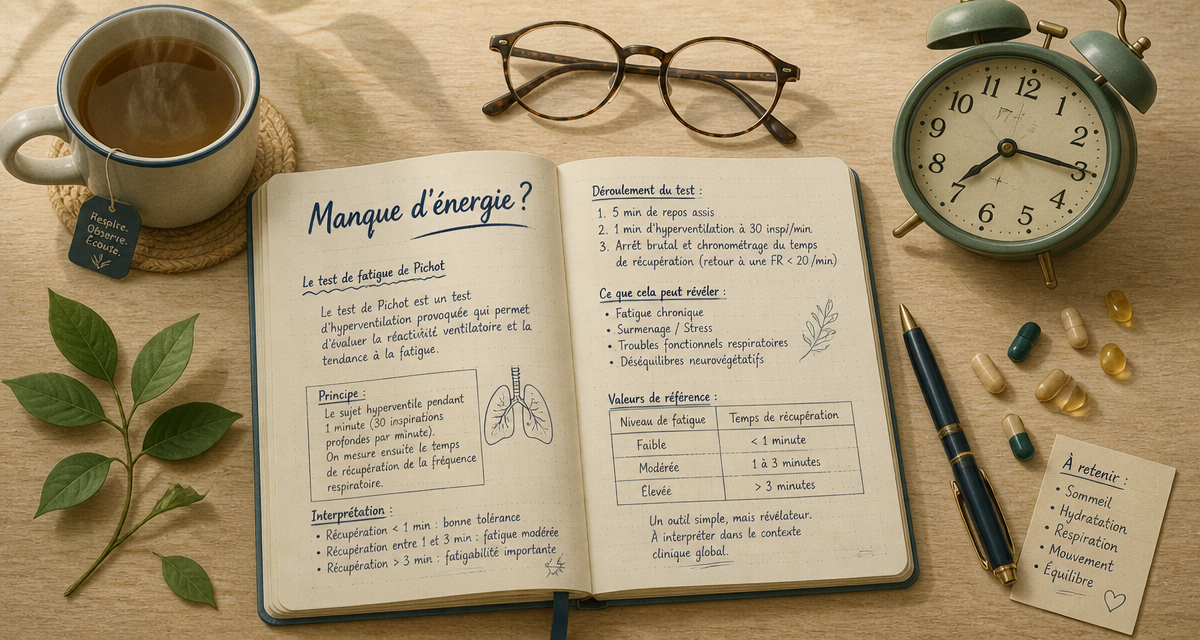 Respire.
Observe.
Écoute.
12
1
2
3
4
5
6
7
8
9
10
11
Manque d'énergie ?
Le test de fatigue de Pichot
Le test de Pichot est un test
d'hyperventilation provoquée qui permet
d'évaluer la réactivité ventilatoire et la
tendance à la fatigue.
Principe :
Le sujet hyperventile pendant
1 minute (30 inspirations
profondes par minute).
On mesure ensuite le temps
de récupération de la fréquence
respiratoire.
Interprétation :
• Récupération < 1 min : bonne tolérance
• Récupération entre 1 et 3 min : fatigue modérée
• Récupération > 3 min : fatigabilité importante
Déroulement du test :
1. 5 min de repos assis
2. 1 min d'hyperventilation à 30 inspi/min
3. Arrêt brutal et chronométrage du temps
de récupération (retour à une FR < 20/min)
Ce que cela peut révéler :
• Fatigue chronique
• Surmenage / Stress
• Troubles fonctionnels respiratoires
• Déséquilibres neurovégétatifs
Valeurs de référence :
Niveau de fatigue Temps de récupération
Faible < 1 minute
Modérée 1 à 3 minutes
Élevée > 3 minutes
Un outil simple, mais révélateur.
À interpréter dans le contexte
clinique global.
À retenir :
• Sommeil
• Hydratation
• Respiration
• Mouvement
• Équilibre